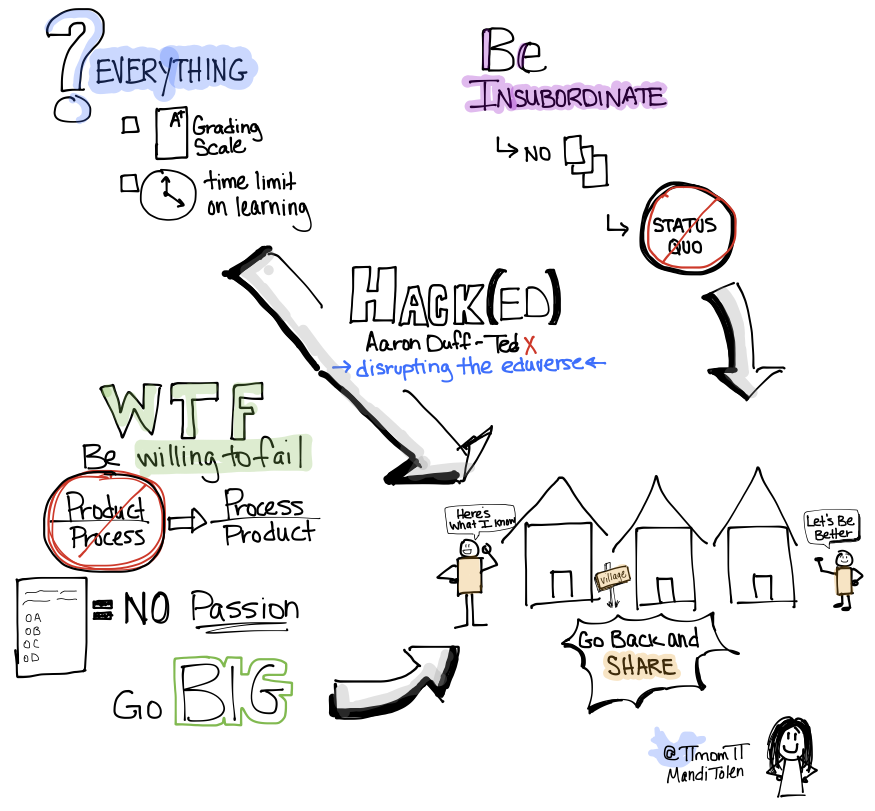 ? EVERYTHING
A+ Grading
Scale
time limit
on learning
Be
INSUBORDINATE
NO
STATUS
QUO
HACK(ED)
Aaron Duff - Ted X
disrupting the eduverse
WTF
Be willing to fail
Product
Process
Process
Product
OA
OB
OC
OD
= NO Passion
GO BIG
Here's
What I know
village
Let's Be
Better
Go Back and
SHARE
@TTmomTT
Mandi Tolen